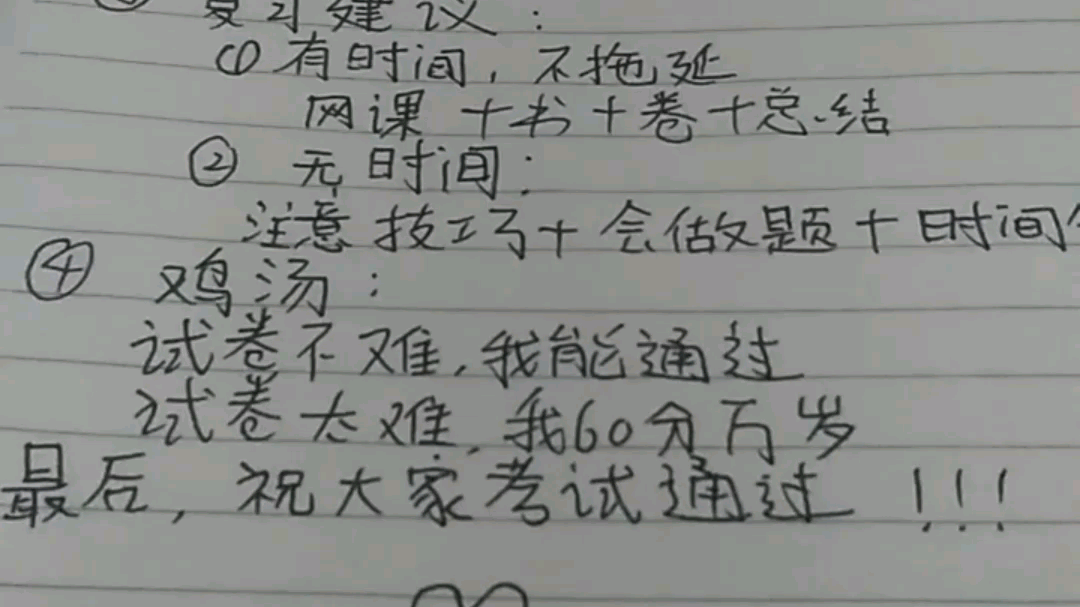 复习建议：
① 有时间，不拖延
网课 + 书 + 卷 + 总结
② 无时间：
注意 技巧 + 会做题 + 时间
④ 鸡汤：
试卷不难，我能通过
试卷太难，我60分万岁
最后，祝大家考试通过 ！！！